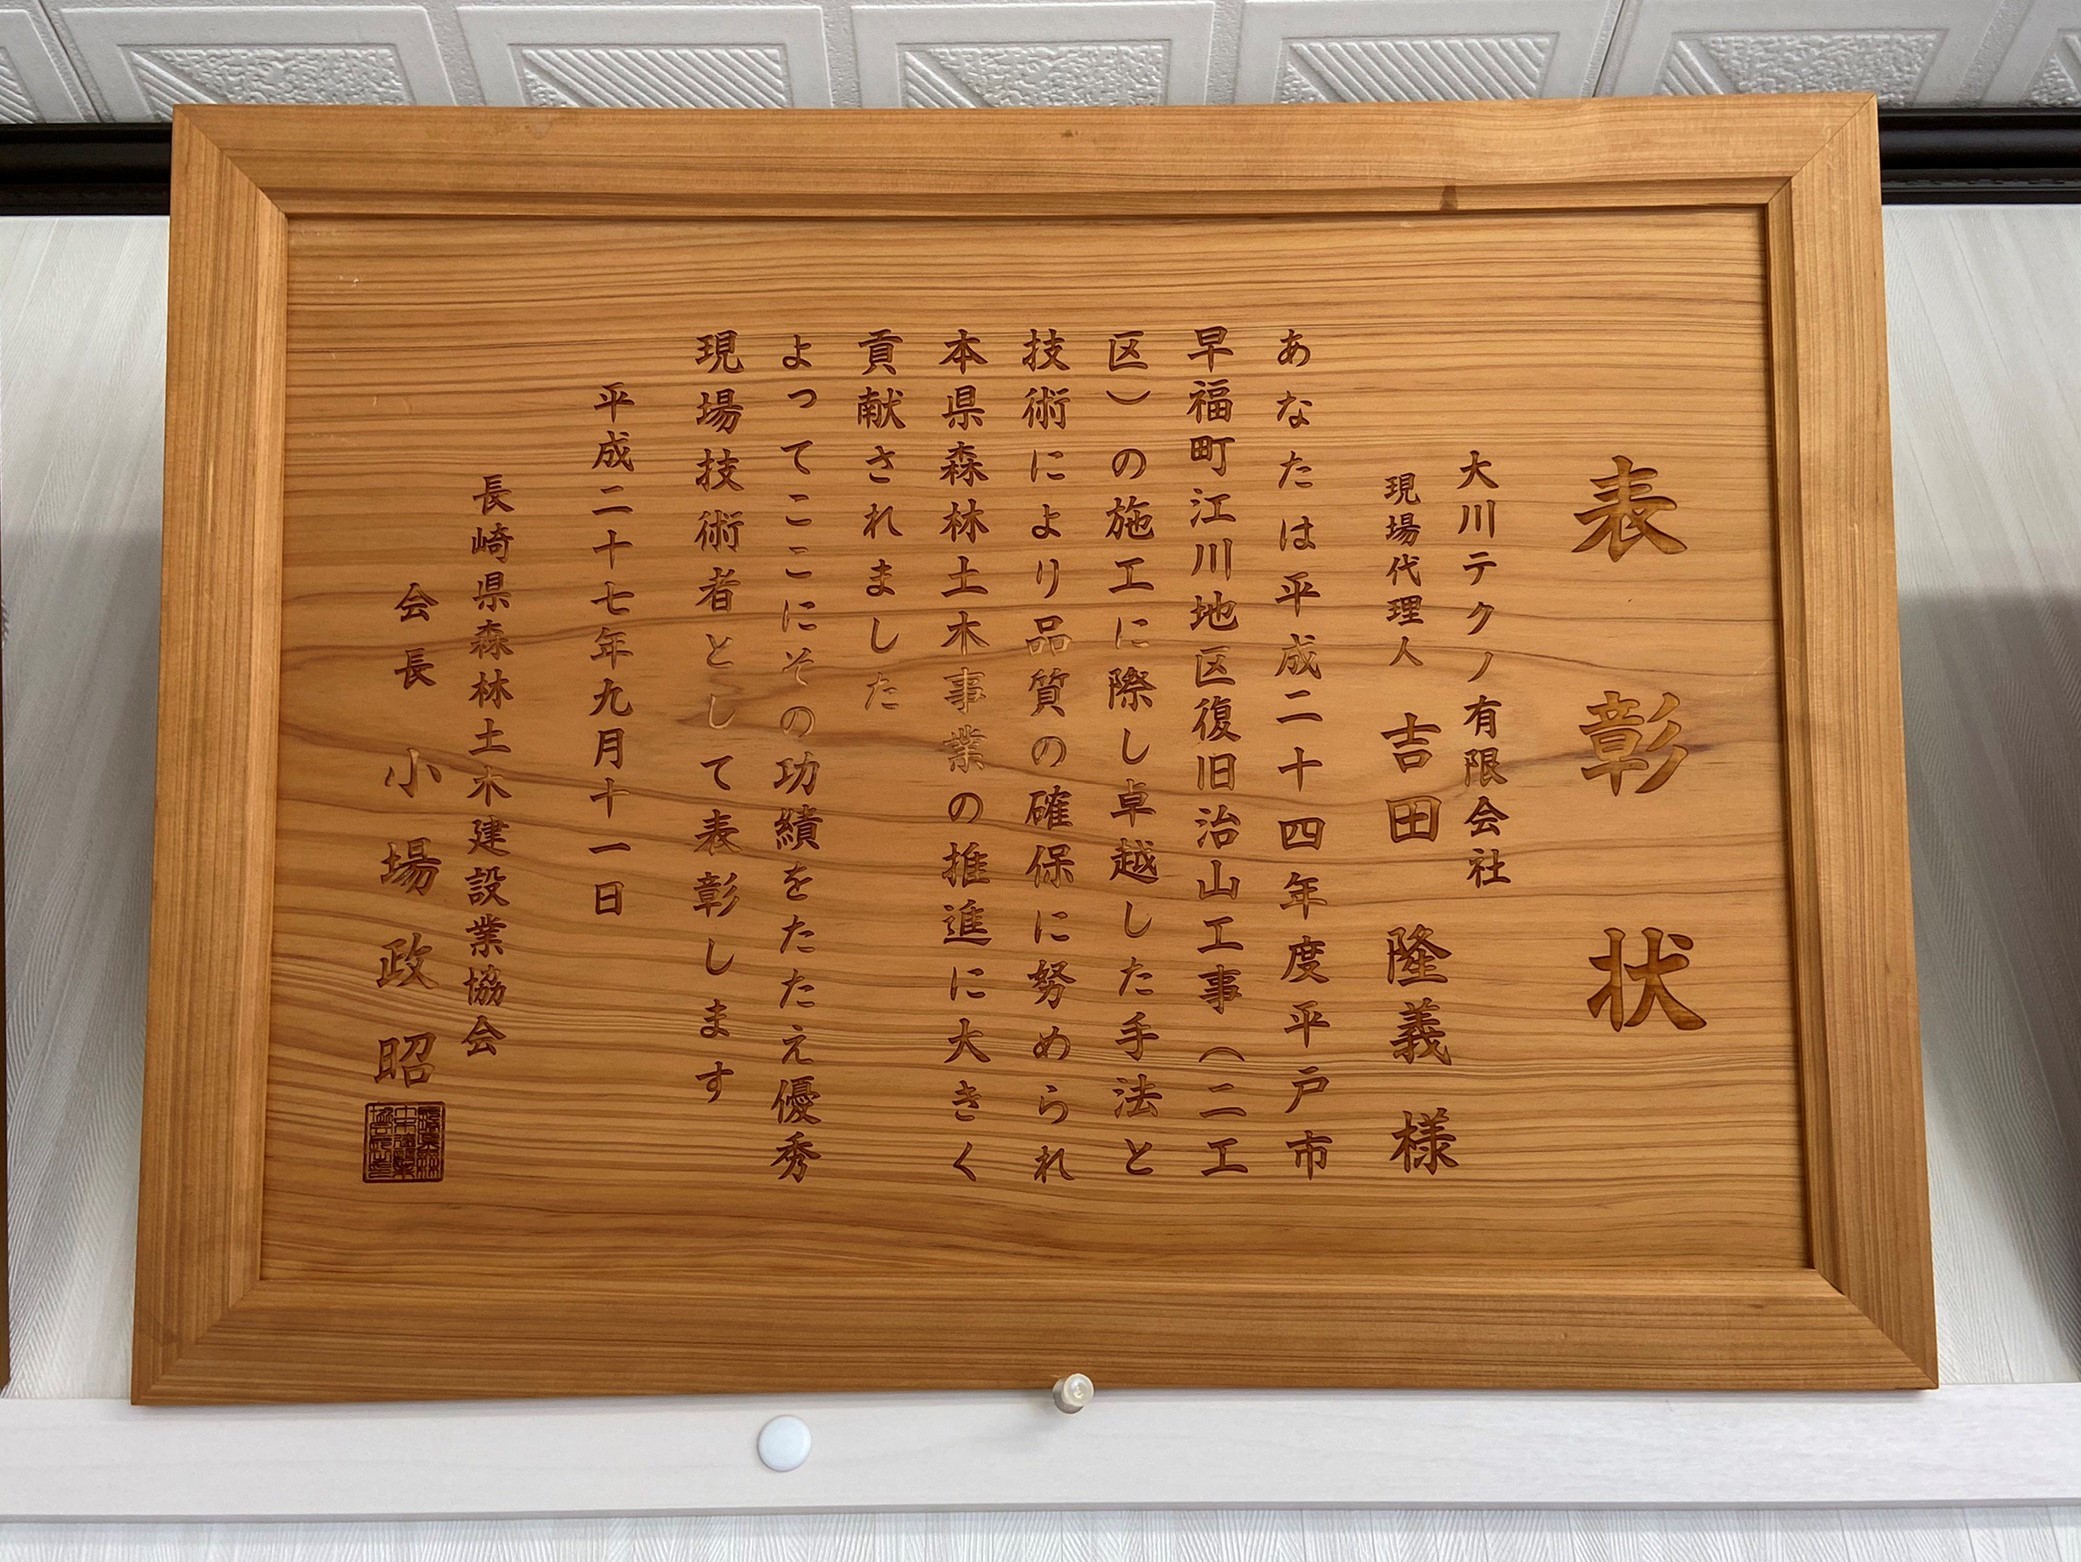 表彰状
大川テクノ有限会社
現場代理人 吉田 隆義 様
あなたは平成二十四年度平戸市
早福町江川地区復旧治山工事（二工
区）の施工に際し卓越した手法と
技術により品質の確保に努められ
本県森林土木事業の推進に大きく
貢献されました
よってここにその功績をたたえ優秀
現場技術者として表彰します
平成二十七年九月十一日
長崎県森林土木建設業協会
会長 小場政昭